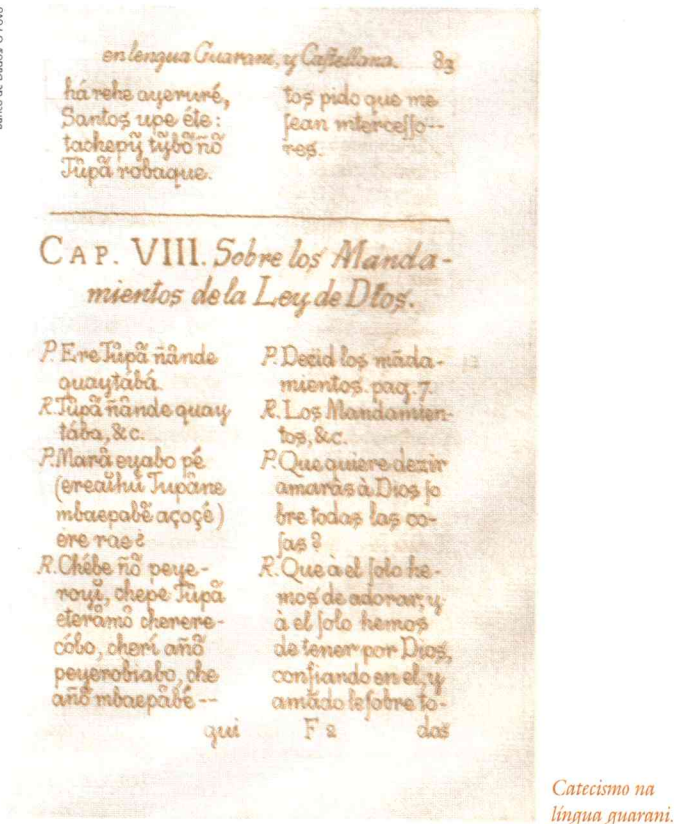 en lengua Guarani, y Castellana. 83
há rehe ayeruré,
Santos upe éte:
tachepyỹ tỹbõ ñõ
Tũpã robaque.
tos pido que me
ſean interceſſo--
res.
CAP. VIII. Sobre los Manda-
mientos de la Ley de Dios.
P. Ere Tũpã ñânde
quaytábá.
R. Tũpã ñânde quay
tába, &c.
P. Marã eyabo pé
(ereaĩhú Tupâne
mbaepabẽ açoçé)
ère rae?
R. Chébe ñõ peye-
royĩ, chepe Tũpã
eterãmõ cherere-
cóbo, cherí añõ
peyerobiabo, che
añõ mbaepãbé --
qui
P. Decid los mãda-
mientos. pag. 7.
R. Los Mandamien-
tos, &c.
P. Que quiere dezir
amaràs à Dios ſo
bre todas las co-
ſas?
R. Que à el ſolo he-
mos de adorar, y
à el ſolo hemos
de tener por Dios,
confiando en el, y
amãdo le ſobre to-
F 2 das
Catecismo na
língua guarani.